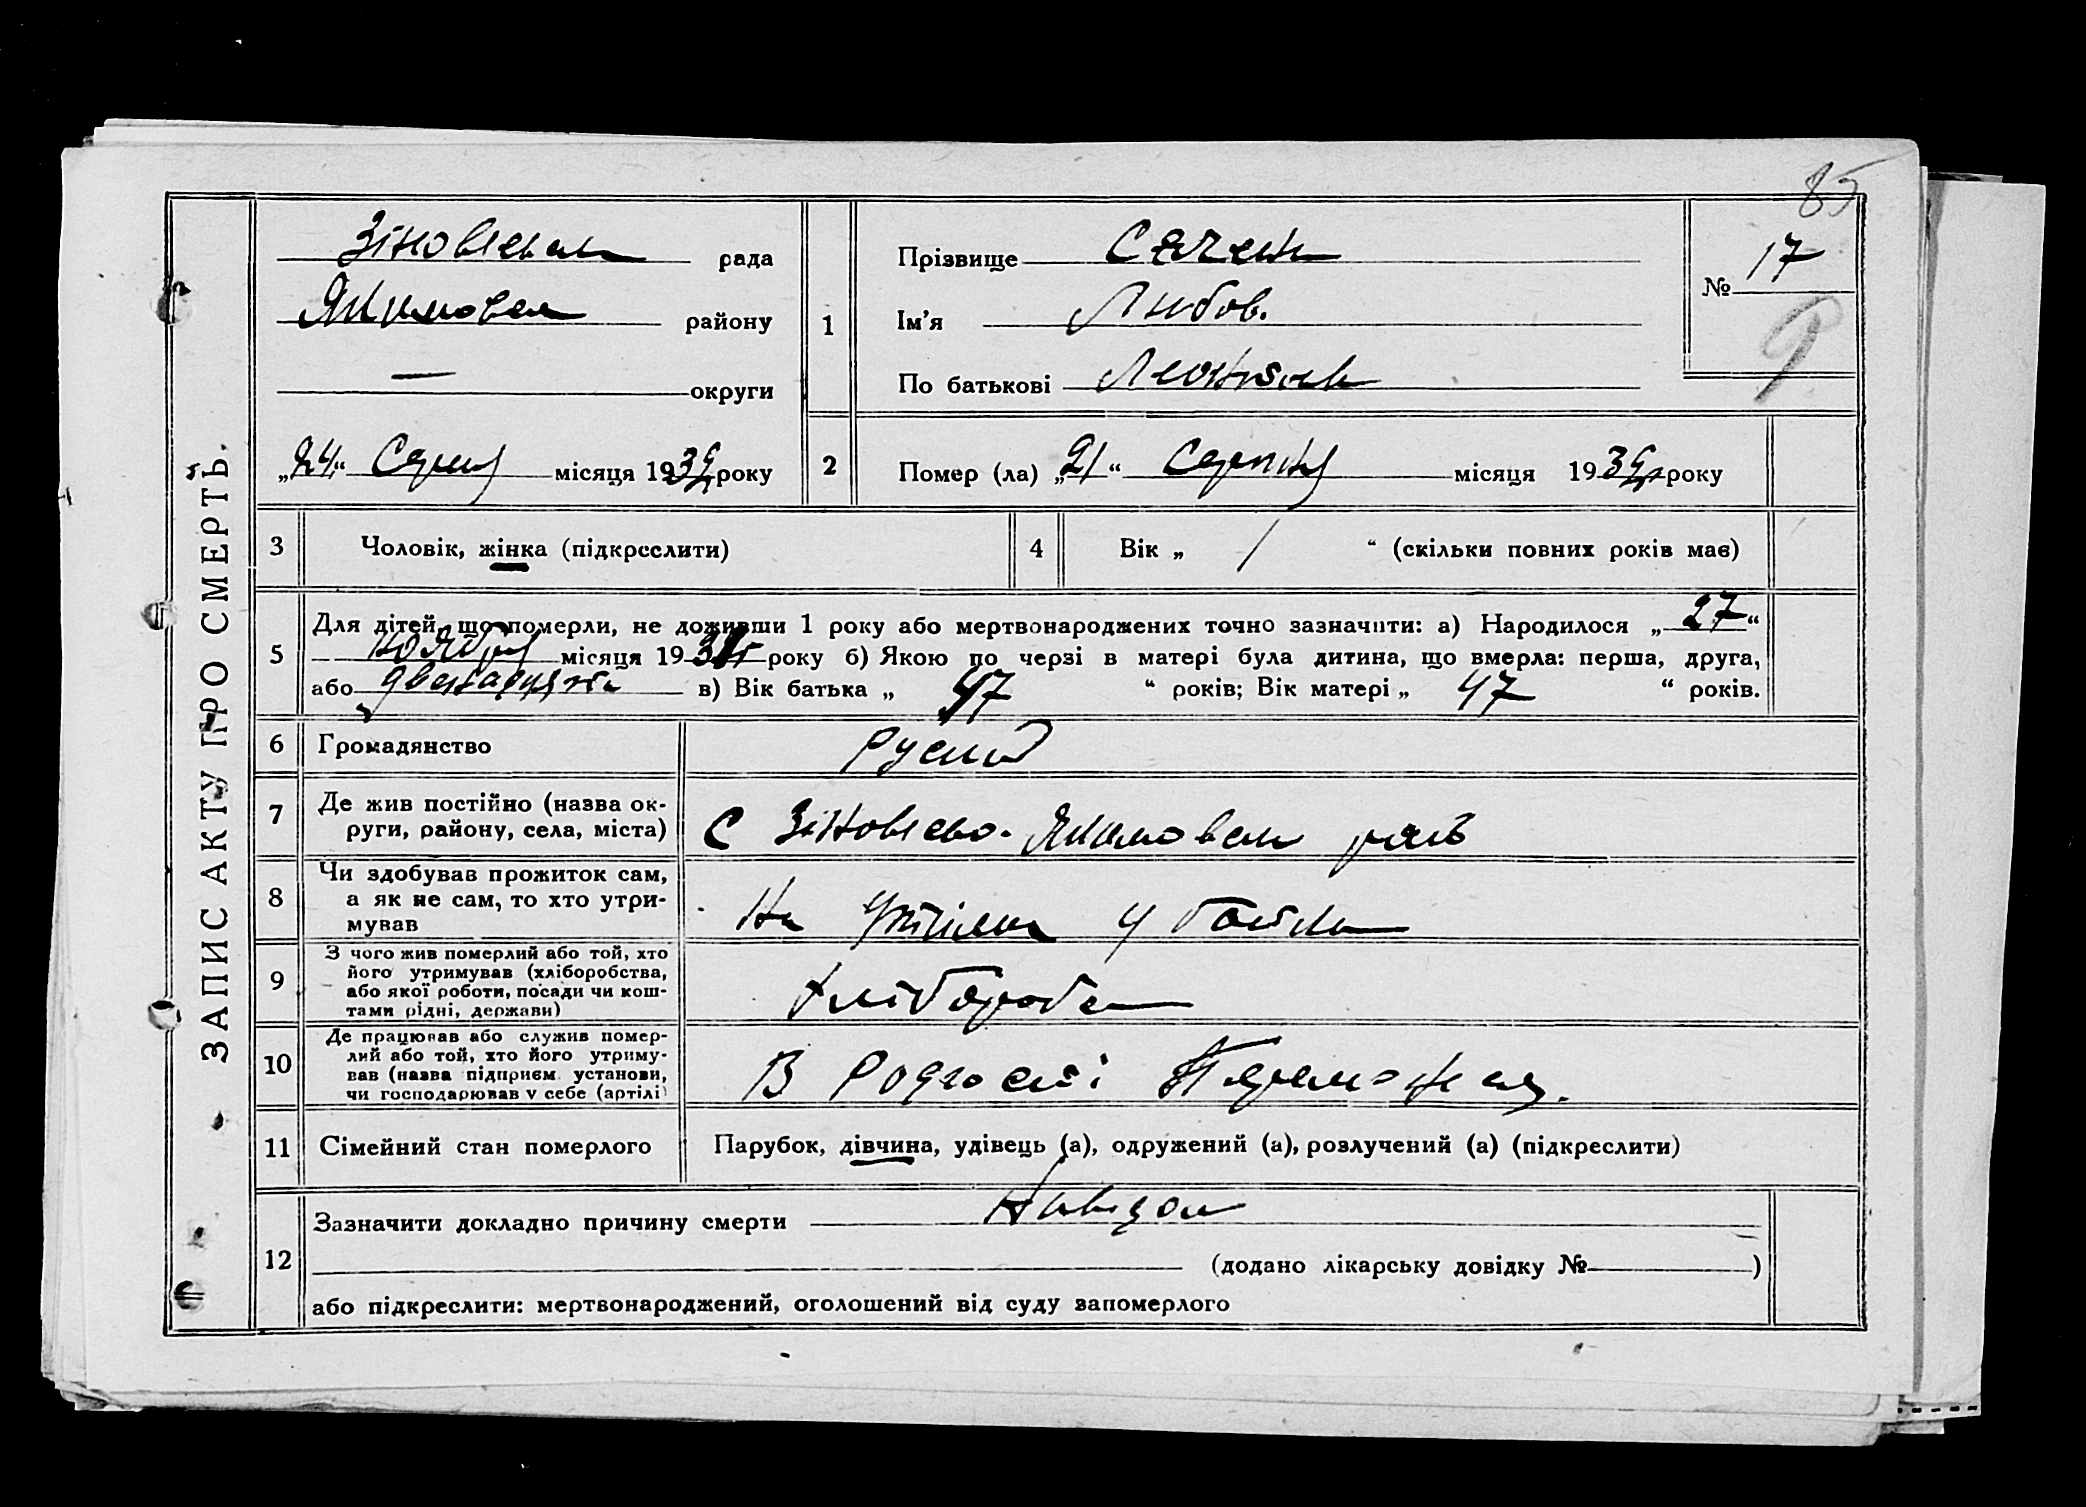 85
ЗАПИС АКТУ ПРО СМЕРТЬ.
рада
району
—
округи
„24“ Серпня місяця 1932 року
1
Прізвище
Ім'я Любов.
По батькові
№ 17
2
Помер (ла) „21“ Серпня місяця 1932 року
3 Чоловік, жінка (підкреслити)
4 Вік „ / “ (скільки повних років має)
5
Для дітей, що померли, не доживши 1 року або мертвонароджених точно зазначити: а) Народилося „27“
ноября місяця 1931 року б) Якою по черзі в матері була дитина, що вмерла: перша, друга,
або в) Вік батька „ 47 “ років; Вік матері „ 47 “ років.
6 Громадянство
7 Де жив постійно (назва ок-
руги, району, села, міста)
С
8 Чи здобував прожиток сам,
а як не сам, то хто утри-
мував
На у батька
9 З чого жив померлий або той, хто
його утримував (хліборобства,
або якої роботи, посади чи кош-
тами рідні, держави)
хлібороба
10 Де працював або служив помер-
лий або той, хто його утриму-
вав (назва підприєм. установи,
чи господарював у себе (артілі)
В
11 Сімейний стан померлого
Парубок, дівчина, удівець (а), одружений (а), розлучений (а) (підкреслити)
12
Зазначити докладно причину смерти
(додано лікарську довідку № )
або підкреслити: мертвонароджений, оголошений від суду запомерлого